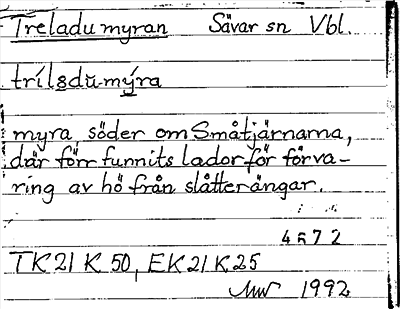 Treladumyran Sävar sn Vbl.
tríladŭmýra
myra söder om Småtjärnarna,
där förr funnits lador för förva-
ring av hö från slåtterängar.
4572
TK 21 K 50, EK 21 K 25
1992